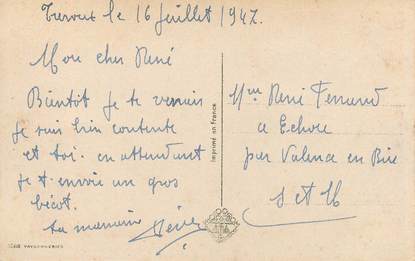 le 16 Juillet 1947.
Mon cher René
Bientôt je te verrais
je suis bien contente
et toi. en attendant
je t. envoie un gros
bécot.
ta maman
Imprimé en France
Mon René Ferrand
a Echou
par Valence en Brie
S et M